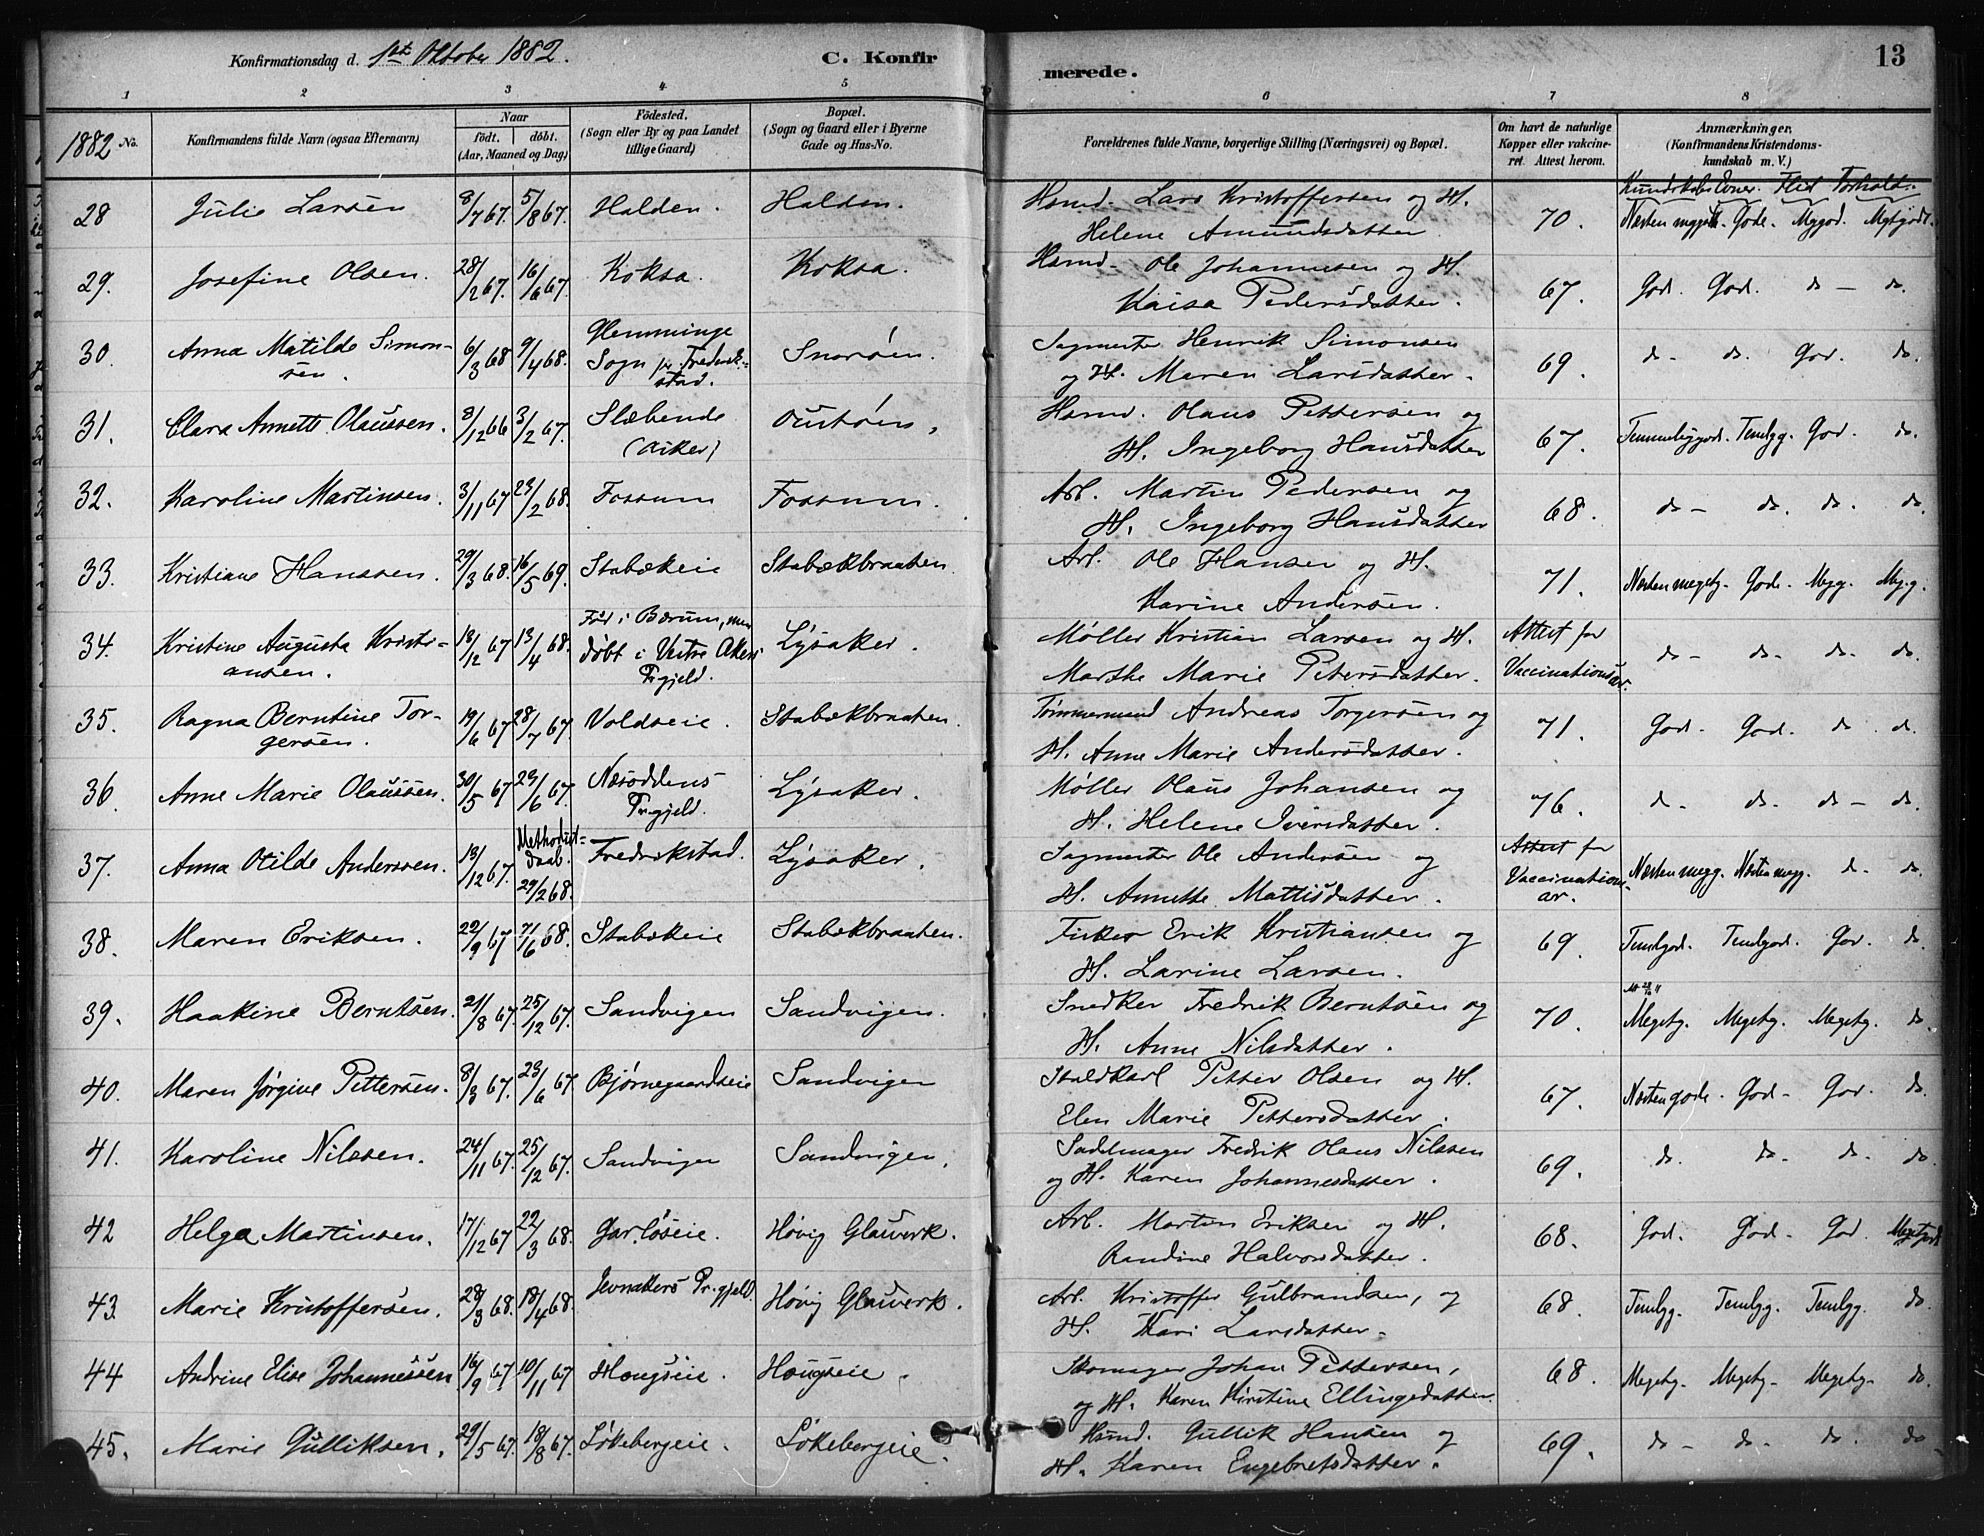 Konfirmationsdag d. 1ste Oktober 1882. C. Konfirmerede. 13
1 2 3 4 5 6 7 8
1882 No.
Konfirmandens fulde Navn (ogsaa Efternavn)
Naar
født. døbt.
(Aar, Maaned og Dag)
Födested.
(Sogn eller By og paa Landet
tillige Gaard)
Bopæl.
(Sogn og Gaard eller i Byerne
Gade og Hus-No.
Forældrenes fulde Navne, borgerlige Stilling (Næringsvei) og Bopæl.
Om havt de naturlige
Kopper eller vakcine-
ret. Attest herom.
Anmærkninger.
(Konfirmandens Kristendoms-
kundskab m. V.)
Kundskab. Evner. Flid. Forhold.
28 Julie Larsen 8/7 67. 5/8 67. Halden. Halden. Hsmd. Lars Kristoffersen og H. 70. Næsten mgodt. Gode. Mggod. Megtgodt.
Helene Amundsdatter
29. Josefine Olsen. 28/2 67. 16/6 67. Koksa. Koksa. Hsmd. Ole Johannesen og H. 67. God. God. do — do.
Kaisa Pedersdatter.
30. Anna Matilde Simon- 6/3 68 9/4 68. Glemminge Snarøen. Sagmester Henrik Simonsen 69. do - do. God. do.
sen. Sogn pr Fredrik- og H. Maren Larsdatter.
stad.
31. Clara Annette Olaussen. 8/12 66 3/2 67. Slæbende Oustøen. Hsmd. Olaus Pettersen og 67. Temmeliggod. Temlgg. God. do.
(Asker) H. Ingeborg Hansdatter
32. Karoline Martinsen. 3/11 67 23/2 68. Fossum Fossum. Arb. Martin Pedersen og 68. do - do. do. do
H. Ingeborg Hansdatter
33. Kristiane Hanssen. 29/3 68. 16/5 69. Stabækeie Stabækbraaten. Arb. Ole Hansen og H. 71. Næsten megetg. Gode. Megg. Meg.g.
Karine Andersen.
34. Kristine Augusta Kristi- 18/12 67 13/4 68. Fød i Bærum, men Lysaker. Møller Kristian Larsen og H. Attest for do - do - do - do.
ansen. døbt i Vestre Akers Marthe Marie Petersdatter. Vaccinationsar.
Prgjeld.
35. Ragna Berntine Tor- 19/6 67 28/7 67. Voldseie. Stabækbraaten. Tømmermand Andreas Torgersen og 71. God. God. do do.
gersen. H. Anne Marie Andersdatter.
36. Anne Marie Olaussen. 30/5 67 29/6 67. Næsoddens Lysaker. Møller Olaus Johansen og 76. do - do. do - do.
Prgjeld. H. Helene Iversdatter.
37. Anna Otilde Anderssen. 13/12 67. Methodist- Fredrikstad. Lysaker. Sagmester Ole Andersen og Attest for Næsten megg. Næsten megg. do. do
daab. H. Annette Mattisdatter. Vaccination-
29/2 68. ar.
38. Maren Eriksen. 22/9 67 7/6 68. Stabækeie Stabækbraaten. Fisker Erik Kristiansen og 69. Temlgod. Temlgod. God. do.
H. Larine Larsen.
39. Haakine Berntsen. 21/8 67. 25/12 67. Sandvigen Sandvigen. Snedker Fredrik Berntsen og 70. Megetg. Megetg. Megetg. do
H. Anne Nilsdatter.
40. Maren Jørgine Pettersen. 8/3 67. 23/6 67. Bjørnegaardseie Sandvigen Staldkarl Petter Olsen og H. 67. Næsten gode. God. God. do.
Elen Marie Pettersdatter.
41. Karoline Nilssen. 24/11 67. 25/12 67. Sandvigen Sandvigen. Sadelmager Fredrik Olaus Nilssen 69. do. do. do. do
og H. Karen Johannesdatter.
42 Helga Martinsen. 17/12 67 22/3 68. Garløseie. Høvig Glasverk. Arb. Morten Eriksen og H. 68. God. God. God. Megetgodt
Randine Halvorsdatter.
43. Marie Kristoffersen. 28/3 68. 18/4 68. Jevnakers Prgjeld. Høvig Glasverk. Arb. Kristoffer Gulbrandsen, og 68. Temlgg. Temlgg. Temlgg. do.
H. Kari Larsdatter.
44 Andrine Elise Johannessen 16/9 67 10/11 67 Hougseie. Hougseie. Skomager Johan Pettersen, 68. Megetg. Megetg. Megetg. do.
og H. Karen Kirstine Ellingsdatter.
45. Marie Gulliksen. 29/5 67. 18/8 67. Løkebergeie. Løkebergeie. Hsmd. Gullik Hansen og 69. do - do. do. do.
H. Karen Engebretsdatter.